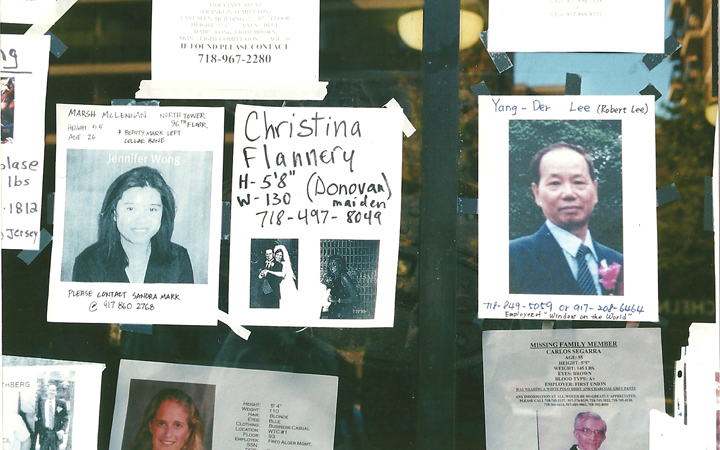 EYES: BLUE
HAIR: LONG LIGHT BROWN
IF FOUND PLEASE CONTACT
718-967-2280
ng
lbs
-1812
Jersey
MARSH MCLENNAN
NORTH TOWER
96TH FLOOR
HEIGHT: 5'5"
AGE 26
* BEAUTY MARK LEFT
COLLAR BONE
Jennifer Wong
PLEASE CONTACT SANDRA MARK
@ 917 860 2768
Christina
Flannery
H-5'8" (Donovan)
W-130 maiden
718-497-8049
Yang-Der Lee (Robert Lee)
718-849-5059 or 917-208-6464
Employee of "Window on the World"
MISSING FAMILY MEMBER
CARLOS SEGARRA
AGE: 55
HEIGHT: 5'5"
WEIGHT: 145 LBS
EYES: BROWN
BLOOD TYPE: A+
EMPLOYER: FIRST UNION
HBERG
HEIGHT: 5'4"
WEIGHT: 110
HAIR: BLONDE
EYES: BLUE
CLOTHING: BUSINESS CASUAL
LOCATION: WTC #1
FLOOR: 93
EMPLOYER: FRED ALGER MGMT.
SSN: